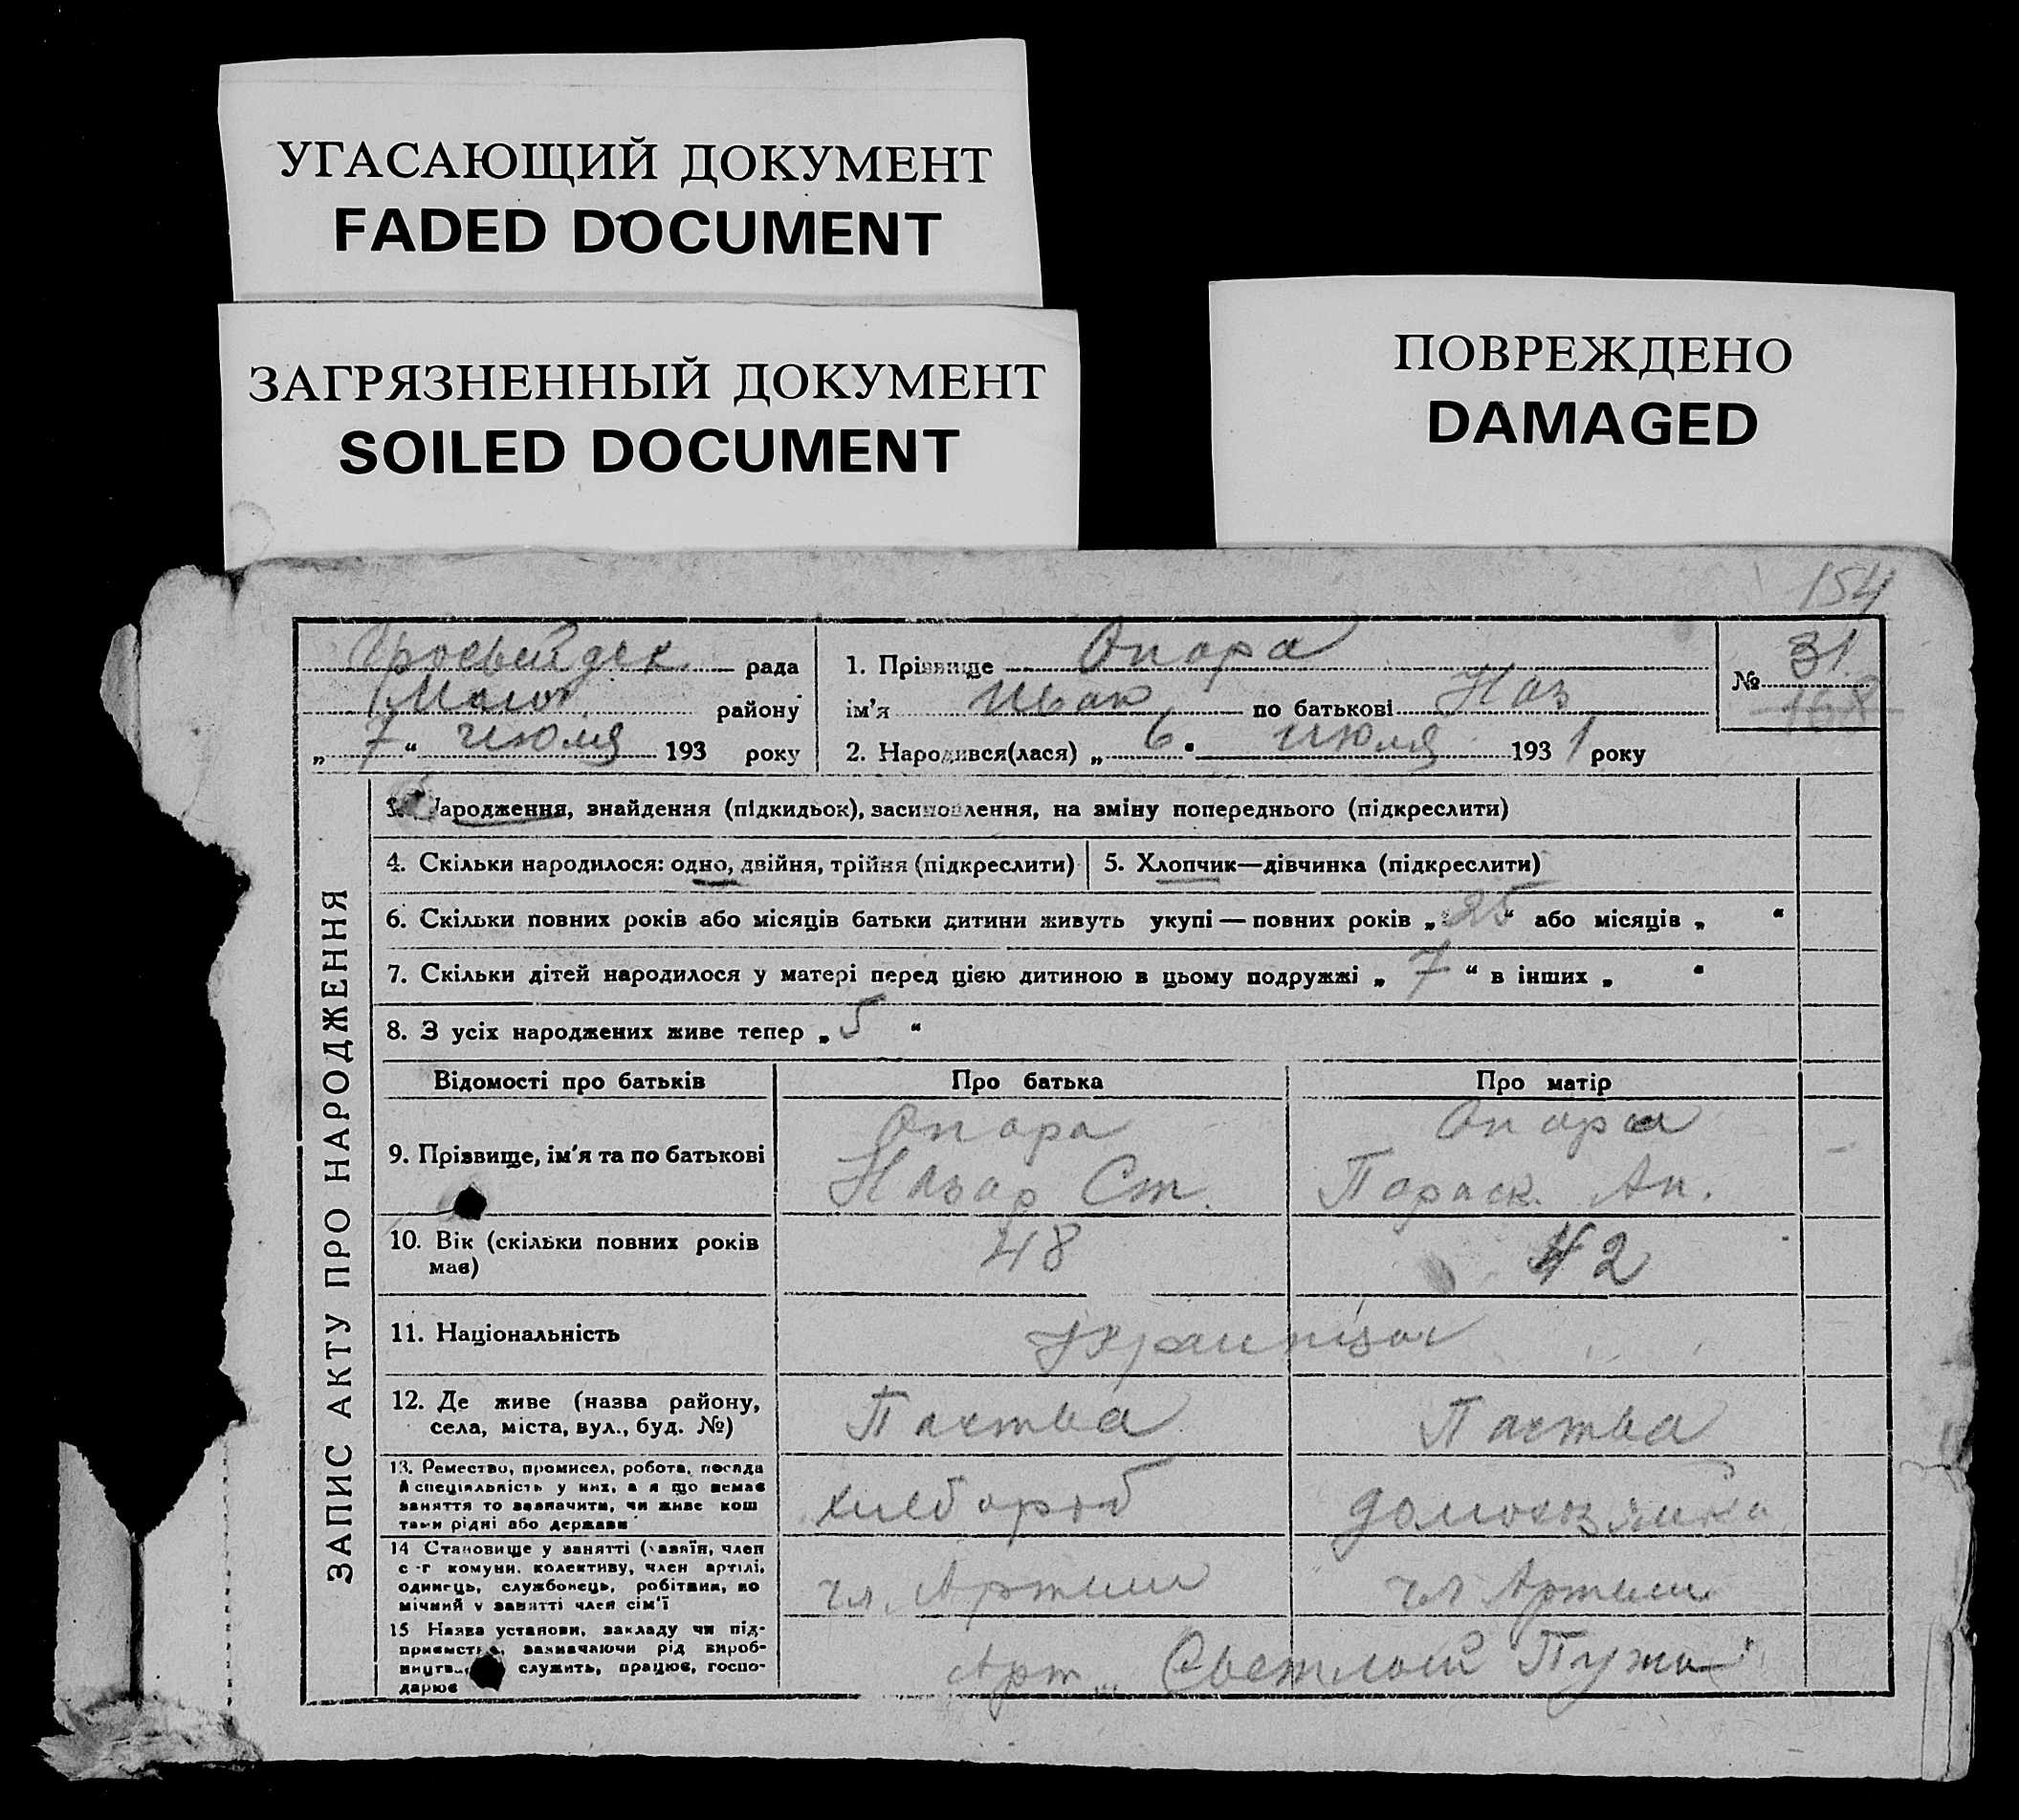 УГАСАЮЩИЙ ДОКУМЕНТ
FADED DOCUMENT
ЗАГРЯЗНЕННЫЙ ДОКУМЕНТ
SOILED DOCUMENT
ПОВРЕЖДЕНО
DAMAGED
154
рада
району
„ 7 “ июля 193 року
1. Прізвище Опара
ім’я Иван по батькові Наз
2. Народився(лася) „ 6 “ июля 1931 року
№ 31
168
ЗАПИС АКТУ ПРО НАРОДЖЕННЯ
3. Народження, знайдення (підкидьок), засиновлення, на зміну попереднього (підкреслити)
4. Скільки народилося: одно, двійня, трійня (підкреслити)
5. Хлопчик—дівчинка (підкреслити)
6. Скільки повних років або місяців батьки дитини живуть укупі — повних років „ 25 “ або місяців „ “
7. Скільки дітей народилося у матері перед цією дитиною в цьому подружжі „ 7 “ в інших „ “
8. З усіх народжених живе тепер „ 5 “
Відомості про батьків Про батька Про матір
9. Прізвище, ім’я та по батькові
Опара
Назар Ст.
Опара
Параск. Ан.
10. Вік (скільки повних років
має)
48
42
11. Національність
12. Де живе (назва району,
села, міста, вул., буд. №)
Паства
Паства
13. Ремество, промисел, робота, посада
й спеціяльність у них, а я що немає
заняття то зазначити, чи живе кош
тами рідні або держави
хлебороб
домохозяйка
14 Становище у занятті (хазяїн, член
с -г комуни, колективу, член артілі,
одинець, службовець, робітник, по
мічний у занятті член сім’ї
чл. Артели
чл Артели
15 Назва установи, закладу чи під-
приємства, зазначаючи рід вироб-
ництва, служить, працює, госпо-
дарює
Арт „ Светлой